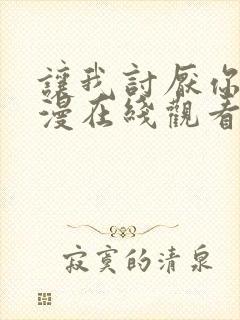 讓我討厭你
漫在綫觀看
寂寞的清泉